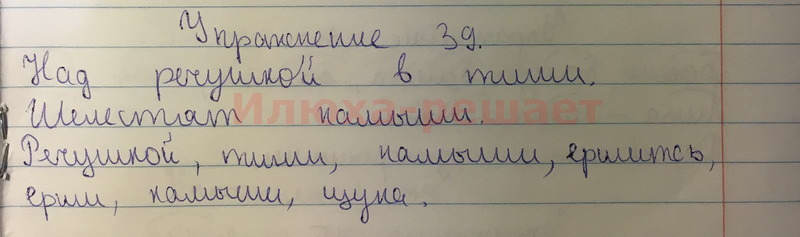 Упражнение 39.
Над речушкой в тиши.
Шелестят камыши.
Илюха-решает
Речушкой, тиши, камыши, ершитсь,
ерши, камыши, щука.